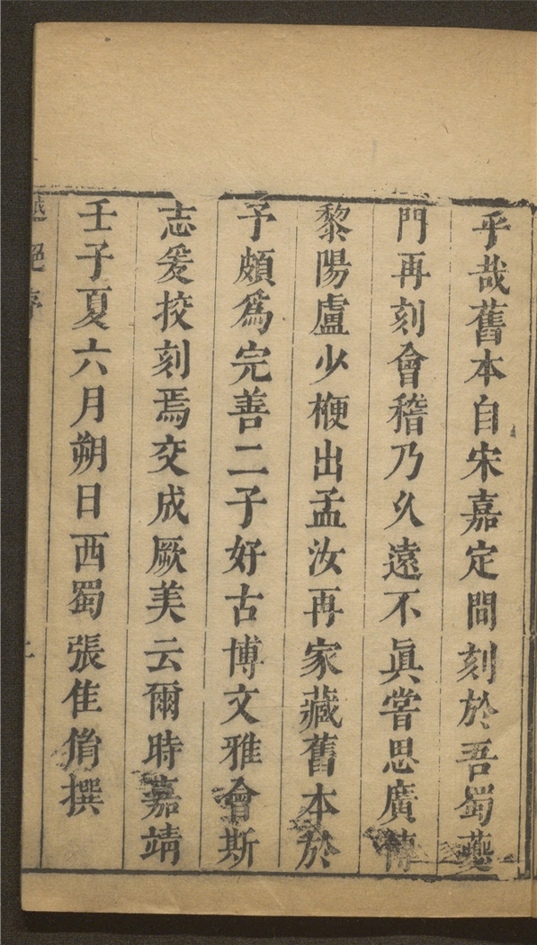 乎哉舊本自宋嘉定間刻於吾蜀夔
門再刻會稽乃久遠不眞嘗思廣傳
黎陽盧少楩出孟汝再家藏舊本於
予頗爲完善二子好古博文雅會斯
志爰挍刻焉交成厥美云爾時嘉靖
壬子夏六月朔日西蜀張隹㣧撰
越絕序